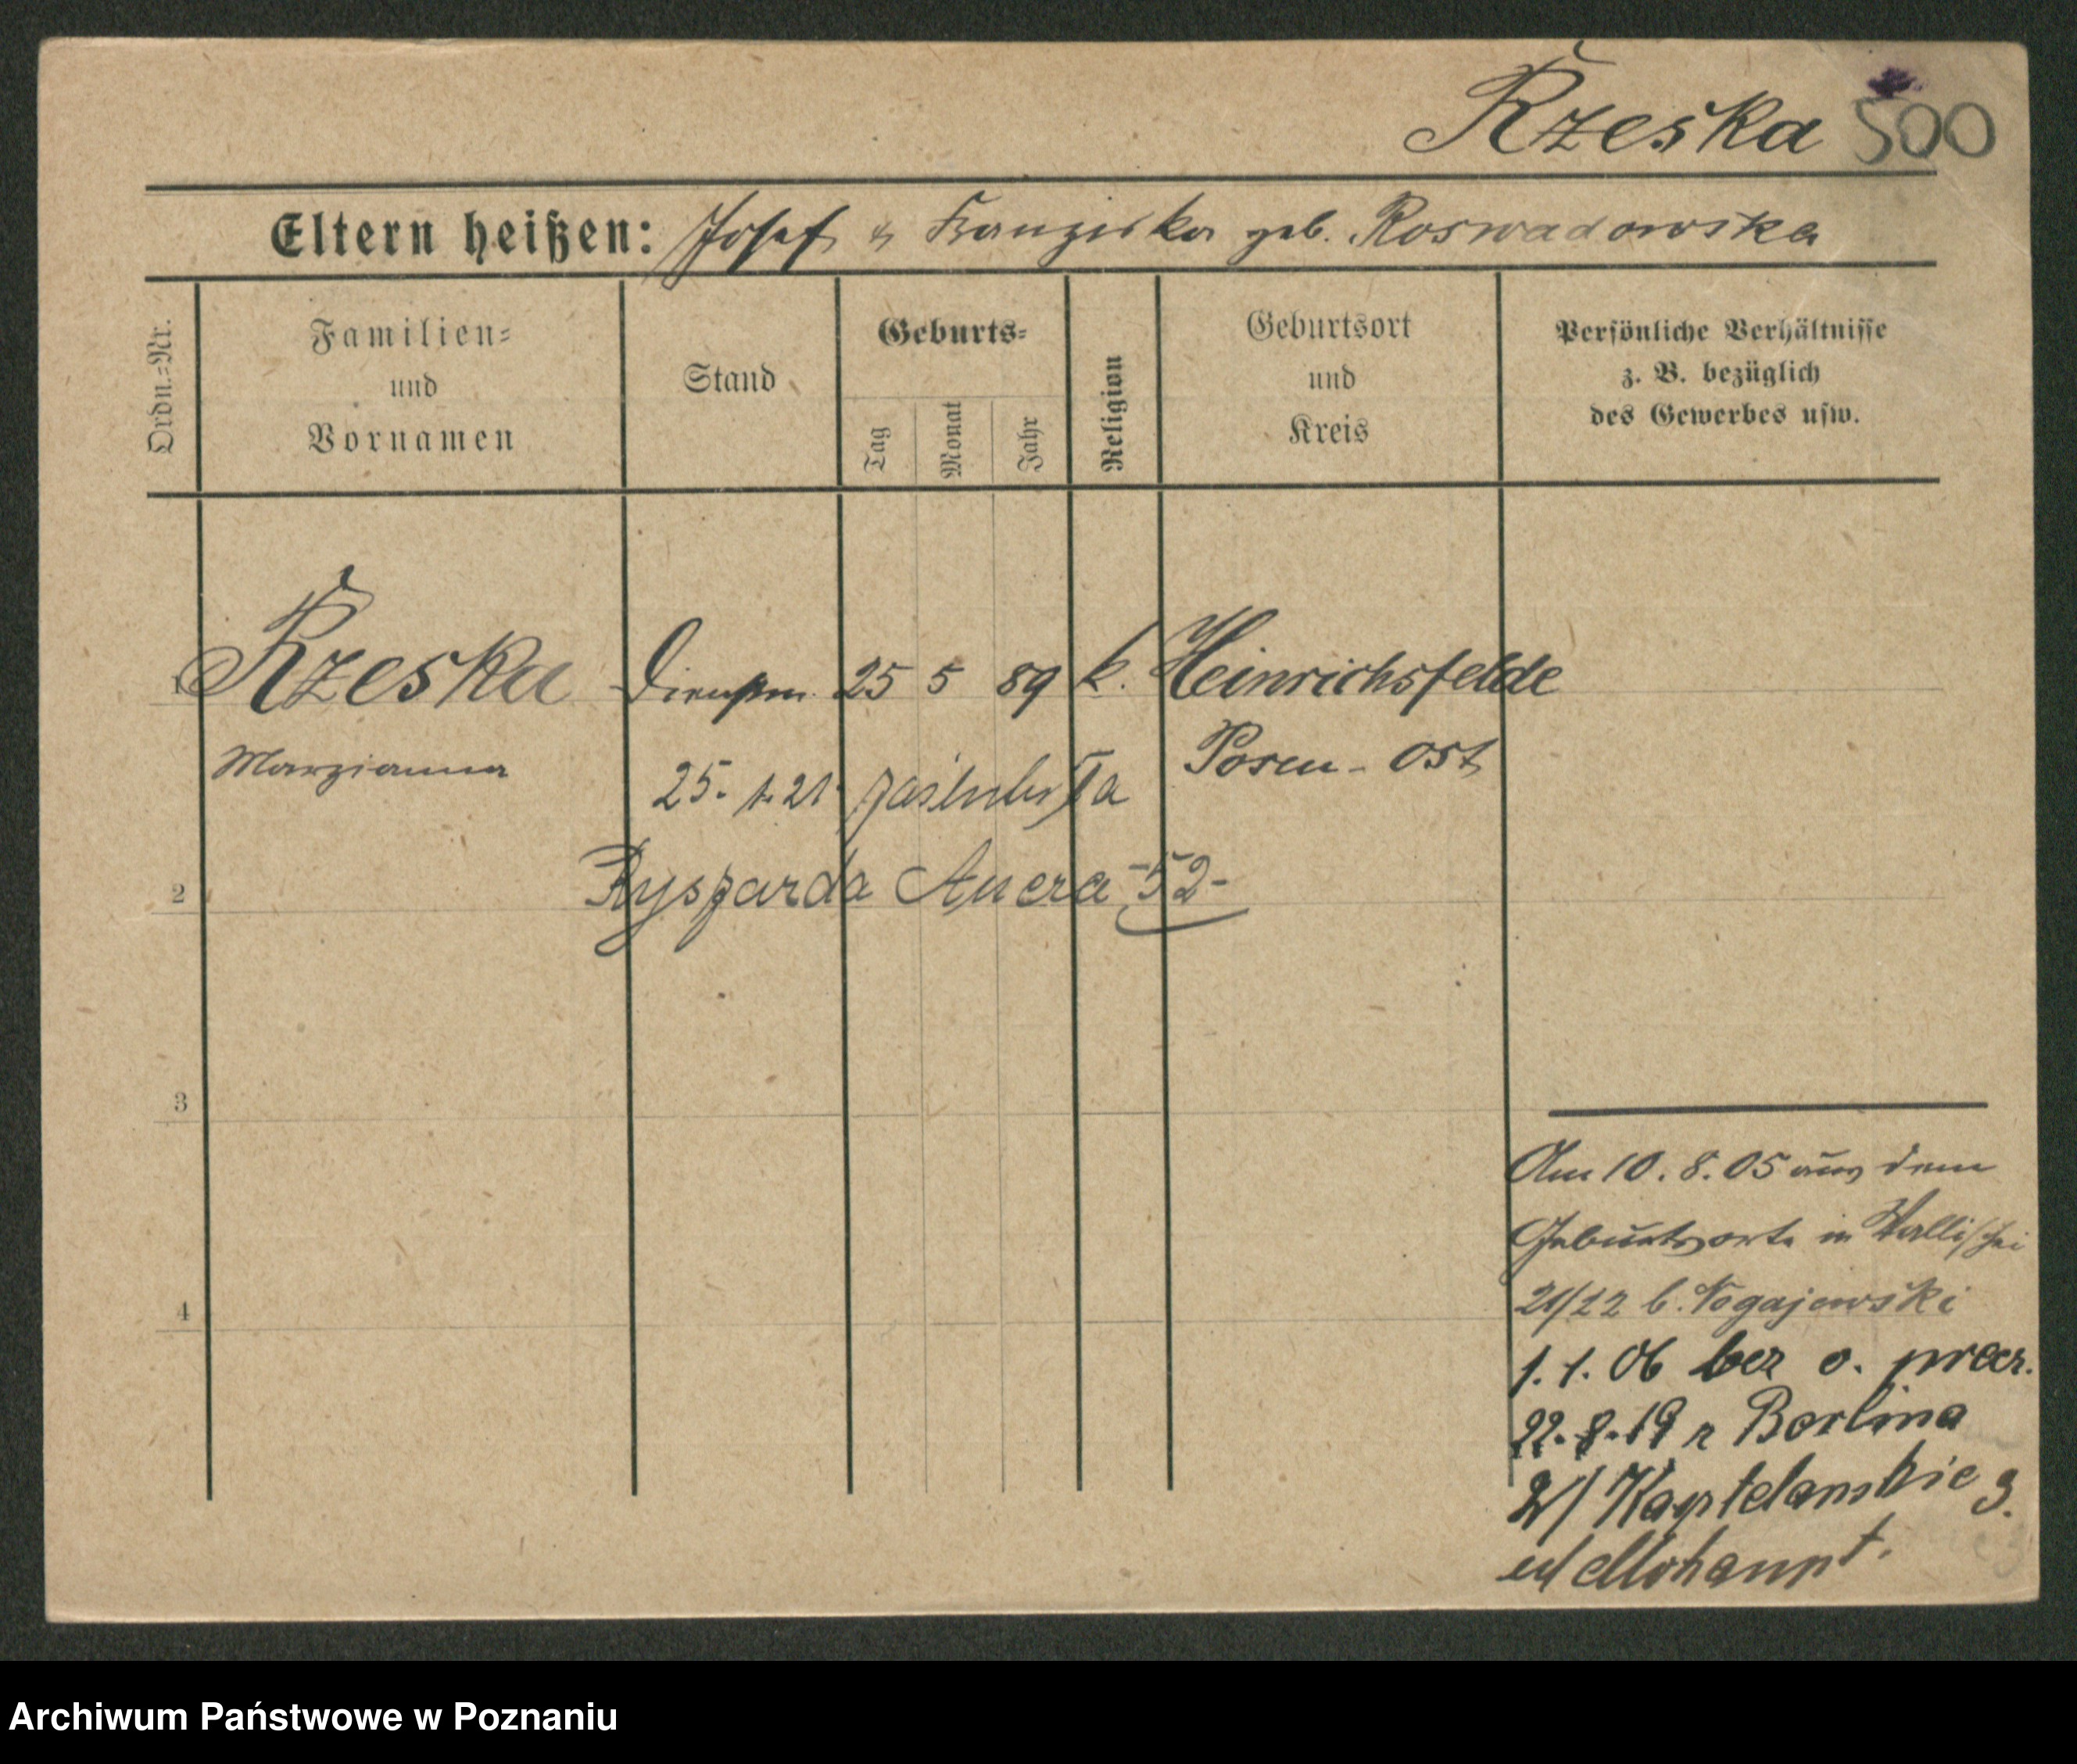 Rzeska 500
Eltern heißen: Josef & Franziska geb. Roswadowska
Ordn.-Nr.
Familien-
und
Vornamen
Stand
Geburts-
Tag
Monat
Jahr
Religion
Geburtsort
und
Kreis
Persönliche Verhältnisse
z. B. bezüglich
des Gewerbes usw.
1 Rzeska Dienstm. 25 5 89 k. Heinrichsfelde
Marzianna
Posen-Ost
25. 1. 21 zaślubiła
2
Ryszarda Auera -52-
3
4
Am 10. 8. 05 aus dem
Geburtsorte in Wallischei
21/22 b. Nogajewski
1. 1. 06 bez o.
22. 8. 19 z Berlina
W/ Kaptelanskie 3.
u/ Mohaupt.
Archiwum Państwowe w Poznaniu